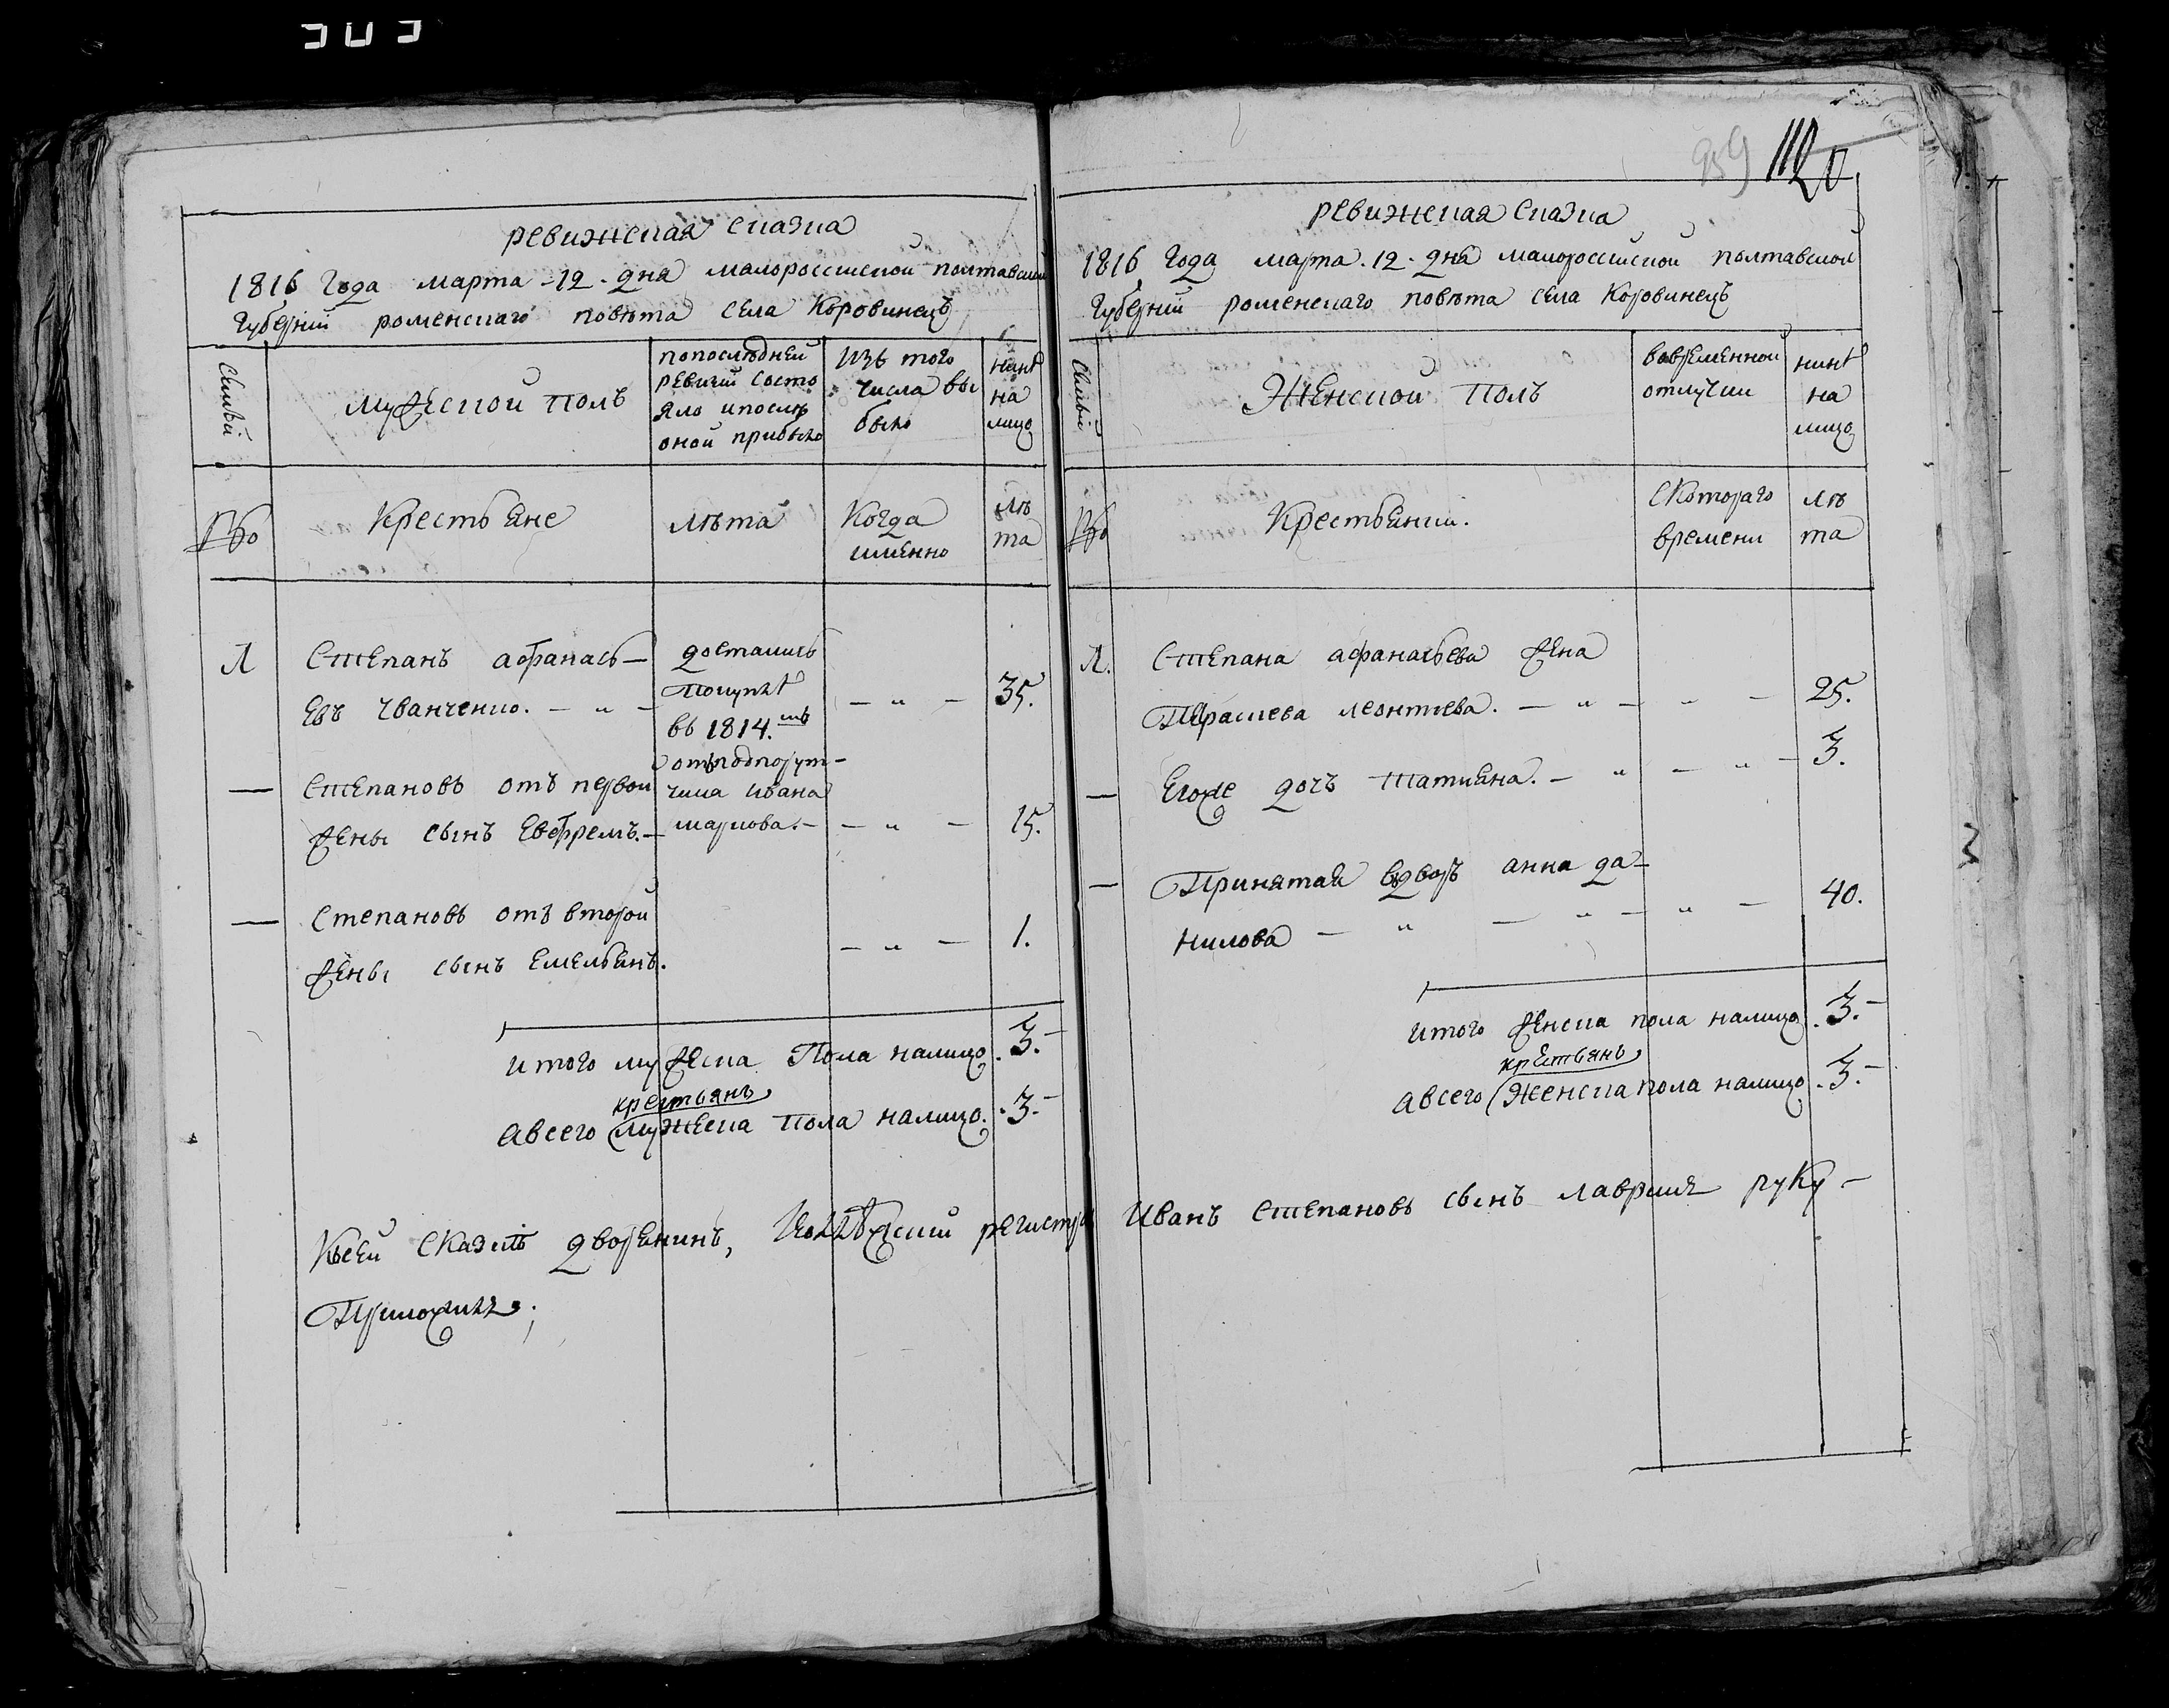 959 1120
ревижская сказка
1816 года марта 12 дня малороссийской полтавской
губернїи роменскаго повѣта села Коровинецъ
Семьи
мужеской полъ
попослѣдней
ревизїи состо
яло и послѣ
оной прибыло
Изъ того
числа вы
было
нинѣ
на
лицо
№о
Крестьяне
лѣта
Когда
именно
лѣ
та
1
Степанъ афанась—
евъ Чванченко. — „ —
достались
покупкѣ
въ 1814.мъ
отъ подпорут—
чика ивана
маркова. —
— „ — 35.
— Степановъ отъ первой
жены сынъ Евфремъ. — — „ — 15.
— Степановъ отъ второй
жены сынъ Емельянъ. — „ — 1.
итого мужеска пола налицо. 3. —
крестьянъ
а всего мужеска пола налицо. 3. —
ревижская сказка
1816 года марта. 12. дня малороссийской полтавской
губернїи роменскаго повѣта села Коровинецъ
Семьи
Женской полъ
вовременной
отлучки
нинѣ
на
лицо
№о
Крестьянки.
Скотораго
времени
лѣ
та
1. Степана афанасьева жена
Параскева леонтиева. — „ — „ — 25.
— Егоже дочъ Татияна. — „ — „ — 3.
— Принятая въдворъ анна да—
нилова — „ — „ — „ — 40.
итого женска пола налицо. 3. —
крестьянъ
а всего женска пола налицо. 3. —
Ксей сказкѣ дворянинъ, коллѣжский регистра Иванъ Степановъ сынъ лаврикъ руку —
Приложилъ;